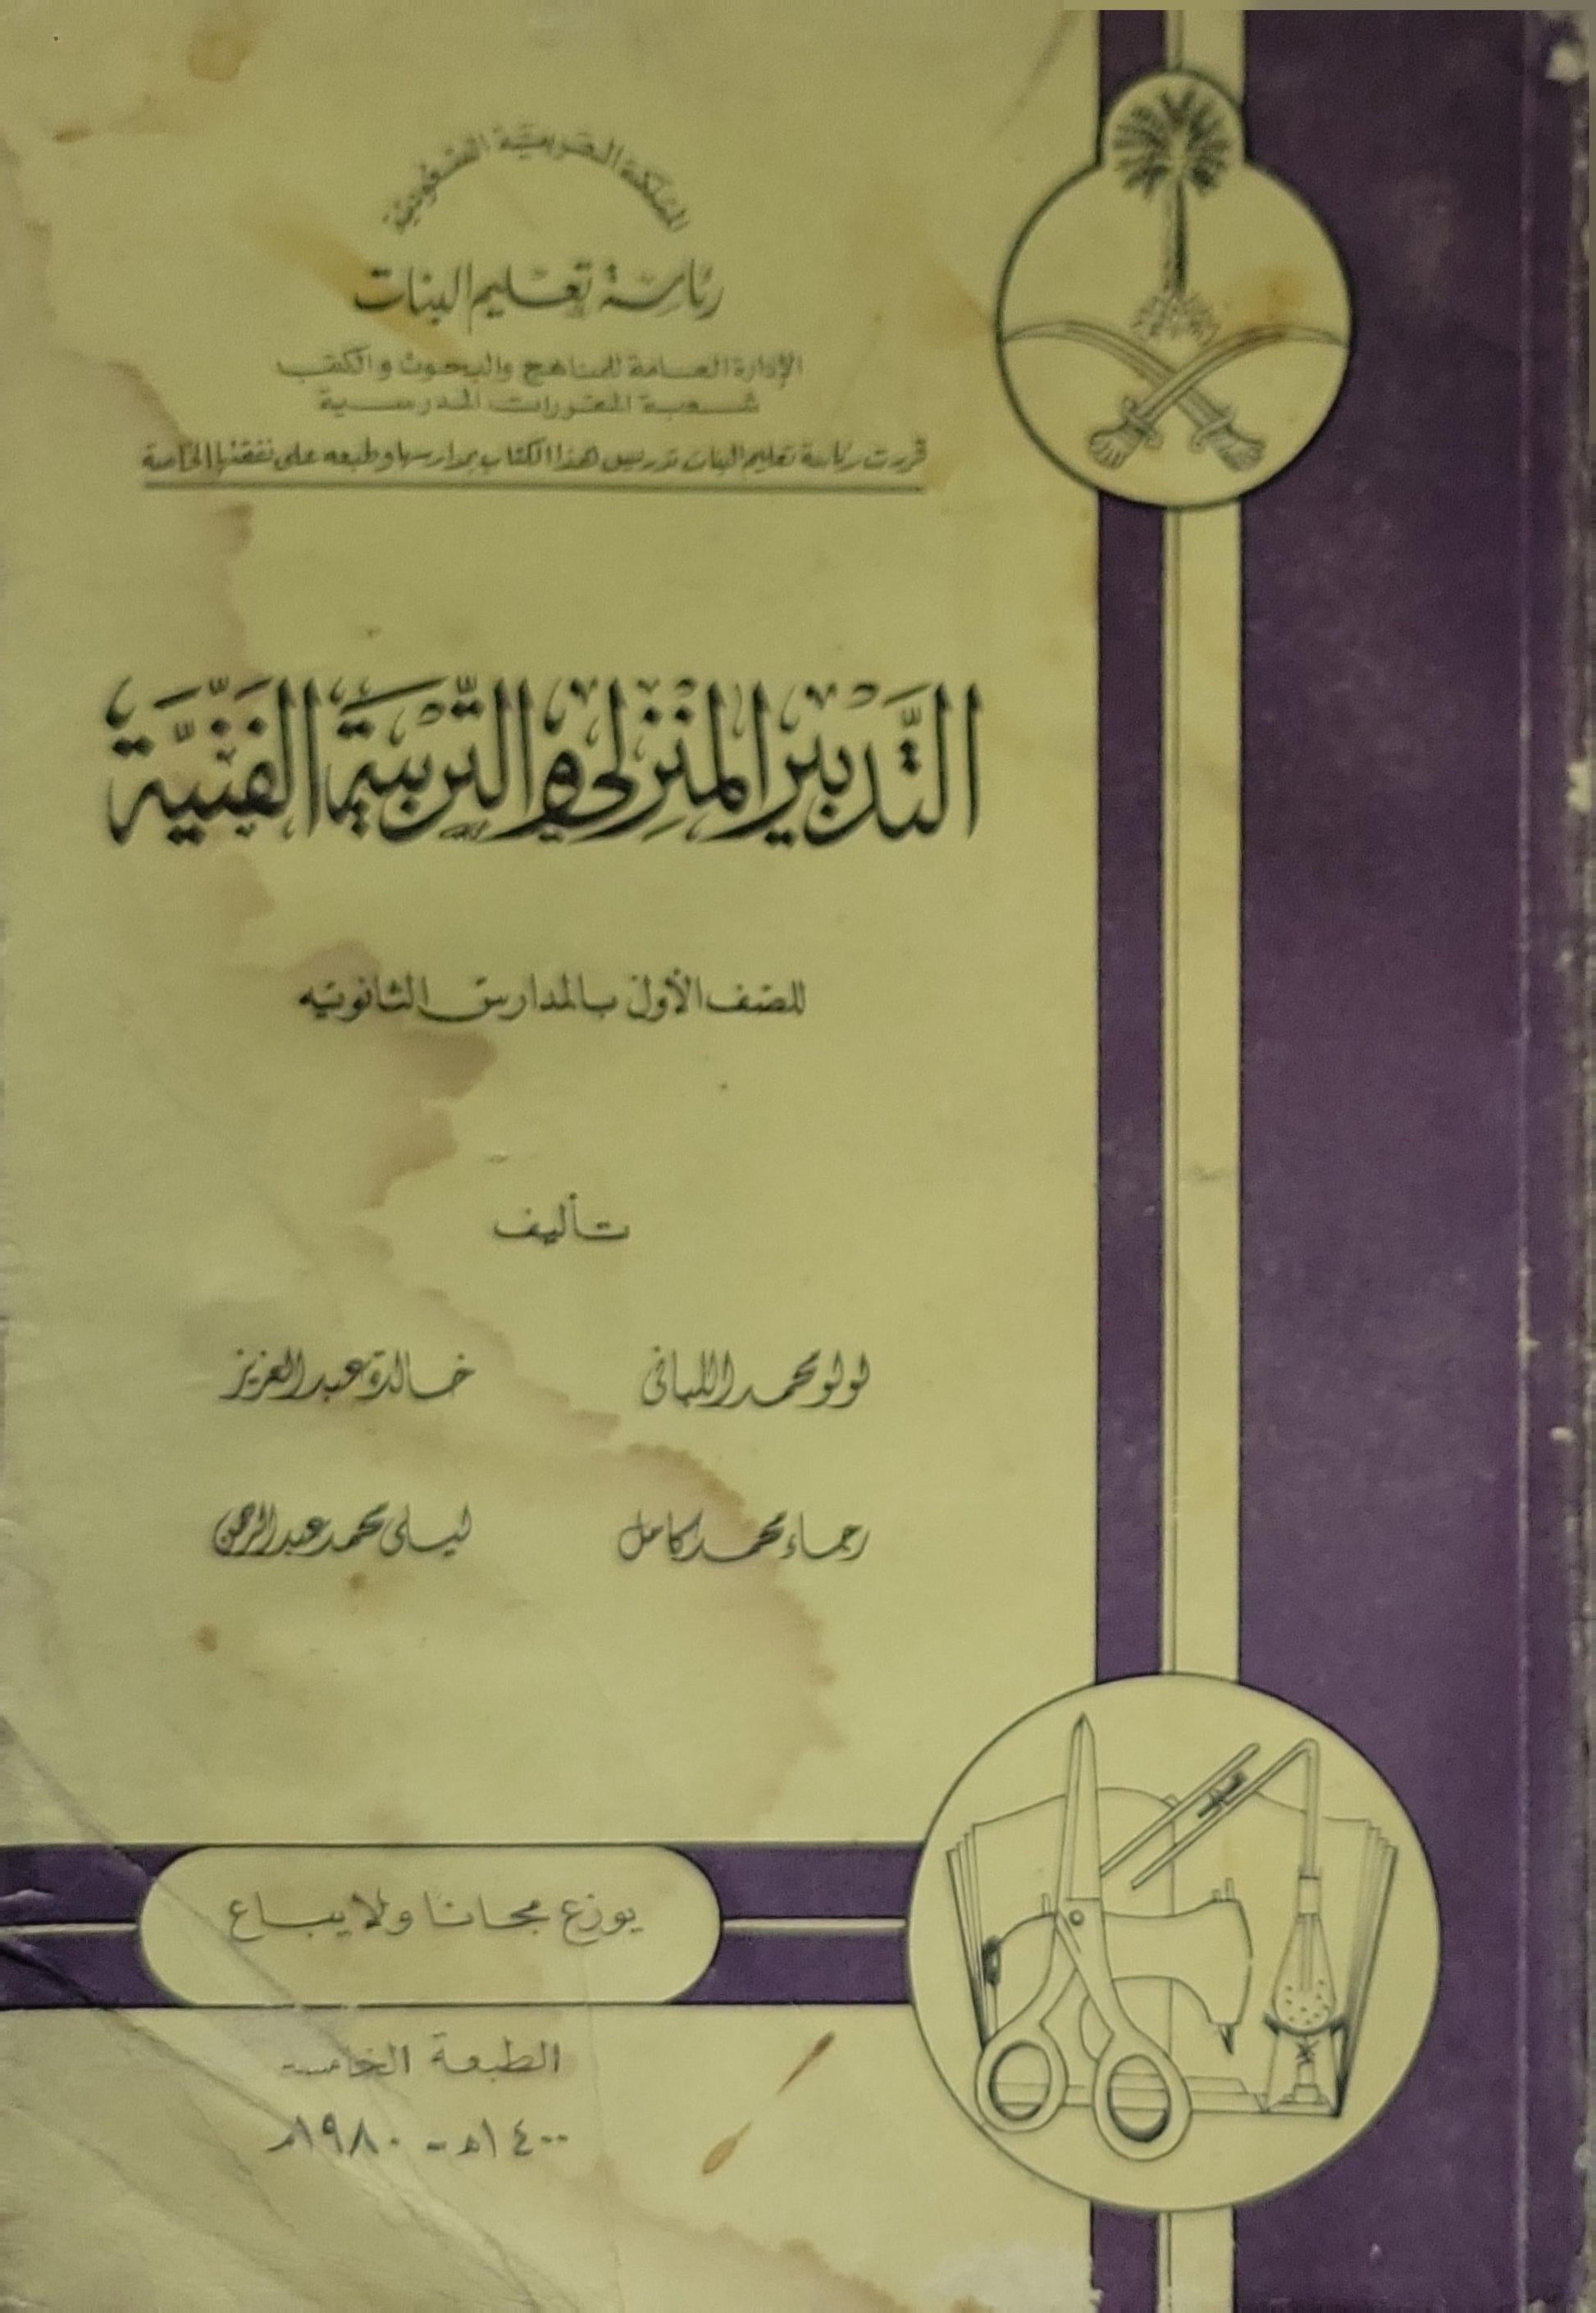 المملكة العربية السعودية
رئاسة تعليم البنات
الإدارة العامة للمناهج والبحوث والكتب
شعبة المقررات المدرسية
قررت رئاسة تعليم البنات تدريس هذا الكتاب بمدارسها وطبعه على نفقتها الخاصة
التَّدبير المنزلي والتَّربية الفنيَّة
للصف الأول بالمدارس الثانويه
تأليف
لولو محمد اللبانى خالدة عبد العزيز
رجاء محمد كامل ليلى محمد عبد الرحمن
يوزع مجانا ولا يباع
الطبعة الخامسة
١٤٠٠هـ - ١٩٨٠م